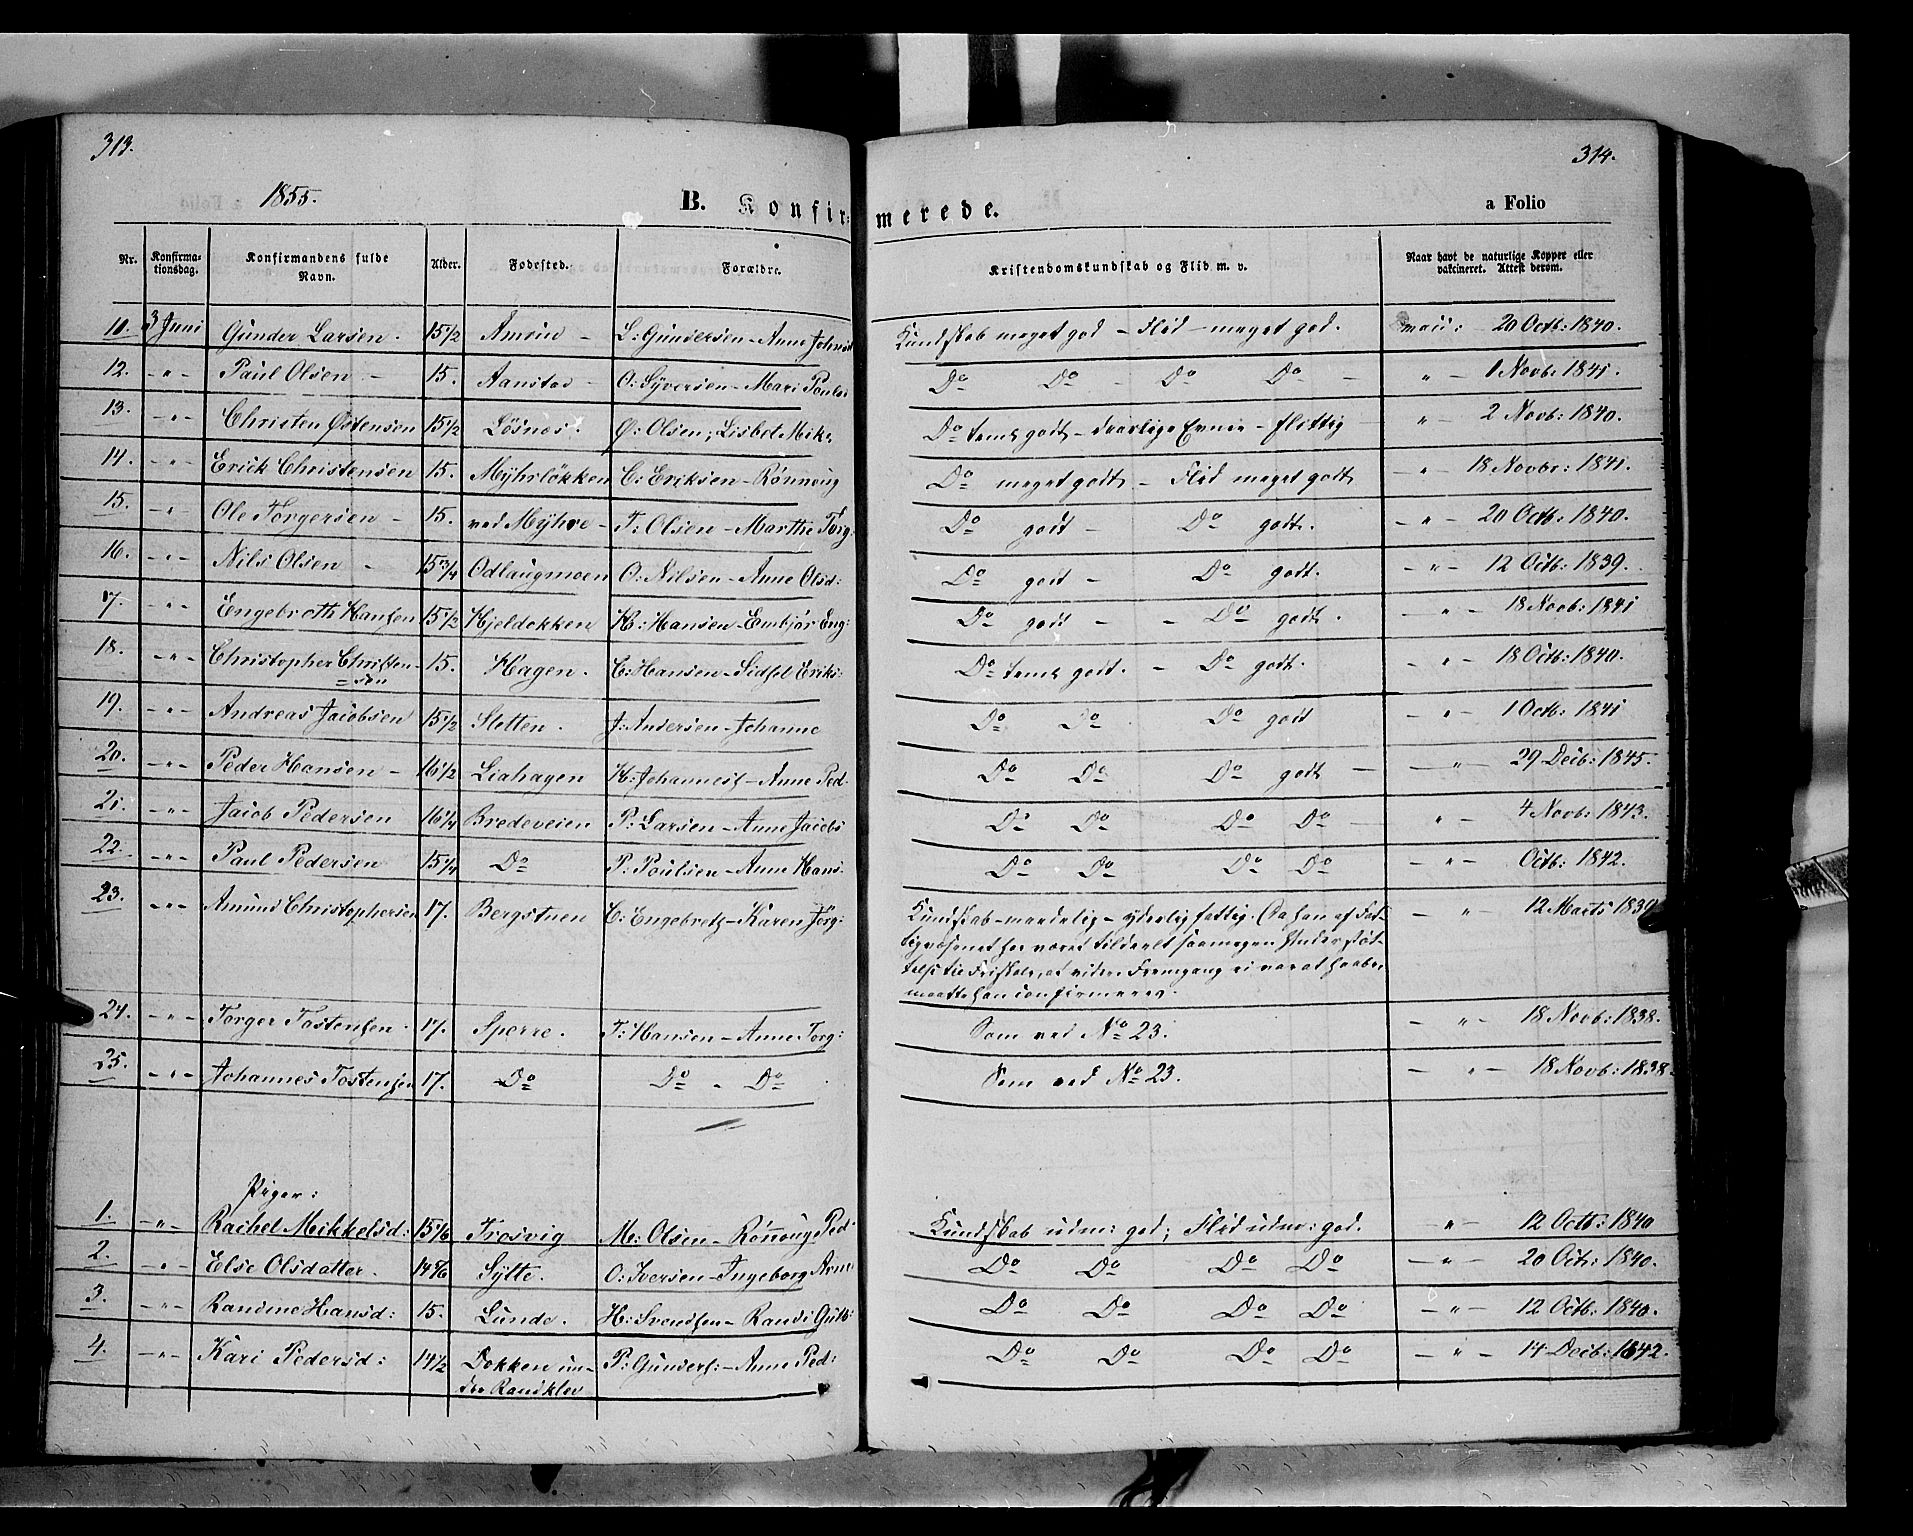 313.
314.
1855.
B. Konfir=
merede.
a Folio
Nr.
Konfirma-
tionsdag.
Konfirmandens fulde
Navn.
Alder.
Fødested.
Forældre.
Kristendomskundskab og Flid m. v.
Naar havt de naturlige Kopper eller
vakcineret. Attest derom.
3 Juni Gunder Larsen. 15 1/2 Amrud - L: Gundersen - Anne Kundskab meget god - Flid meget god. 20 Octb: 1840.
12. - " - Paul Olsen - 15. Aanstad - O: Syversen - Mari Do Do - Do Do - " - 1 Novb: 1841.
13. - " - Christen Østensen 15 1/2 Løsnes. Ø: Olsen; Lisbet Mik: Do temel: godt - daarlige Evner - flittig " - 2 Novb: 1840.
14. - " - Erick Christensen 15. Myhrløkken C: Eriksen - Rønnoug Do meget godt - Flid meget godt - " - 18 Novbr: 1841.
15. - " - Ole Torgersen - 15. ved Myhre - T: Olsen - Marthe Torg: Do godt - Do godt. - " - 20 Octb: 1840.
16. - " - Nils Olsen - 15 3/4 Odlaugmoen O: Nilsen - Anne Olsd: Do godt - Do godt. - " - 12 Octb: 1839.
17. - " - Engebreth Hansen 15 1/2 Kjeldokken H: Hansen - Embjør Eng: Do godt - - Do godt. - " - 18 Novb: 1841
18. - " - Christopher Christen- 15. Hagen. C: Hansen - Sidsel Eriks: Do temel: godt. - Do godt. - " - 18 Octb: 1840.
= sen
19. - " - Andreas Jacobsen 15 1/2 Sletten. J: Andersen - Johanne Do Do Do godt - " - 1 Octb: 1841
20. - " - Peder Hansen - 16 1/2 Liahagen H: Johannes: - Anne Ped: Do Do Do godt - - " - 29 Decb: 1845.
21. - " - Jacob Pedersen 16 1/4 Bredeveien P: Larsen - Anne Jacobs Do Do Do Do - " - 4 Novb: 1843.
22. - " - Paul Pedersen 15 1/4 Do P: Poulsen - Anne Hans: Do Do Do Do - " - Octb: 1842.
23. - " - Amund Christophersen 17. Bergstuen C: Engebrets - Karen Jørg: Kundskab maadelig - yderlig fattig. Da han af Fat- - " - 12 Marts 1839
tigvæsenet har været tildeelt saamegen Understøt-
telse til Friskole, at videre Fremgang ei var at haabe,
maatte han confirmeres.
24. - " - Torger Tostensen. 17. Sperre. T: Hansen - Anne Torg: Som ved No 23. - " - 18 Novb: 1838.
25. - " - Johannes Tostensen 17. Do Do - Do Som ved No 23. - " - 18 Novb: 1838.
Piger:
1. - " - Rachel Mikkelsd: 15 1/6 Trosvig M: Olsen - Rønnoug Ped: Kundskab udm: god; Flid udm: god. - " - 12 Octb: 1840
2. - " - Else Olsdatter. 14 5/6 Sytte. O: Iversen - Ingeborg Arne Do Do Do Do - " - 20 Octb: 1840.
3. - " - Randine Hansd: 15. Lunde. H: Svendsen - Randi Gulb: Do Do Do Do - " - 12 Octb: 1840.
4. - " - Kari Pedersd: 14 1/2 Dokken un- P: Gunders: - Anne Ped: Do Do Do Do - " - 14 Decb: 1842.
der Randklev